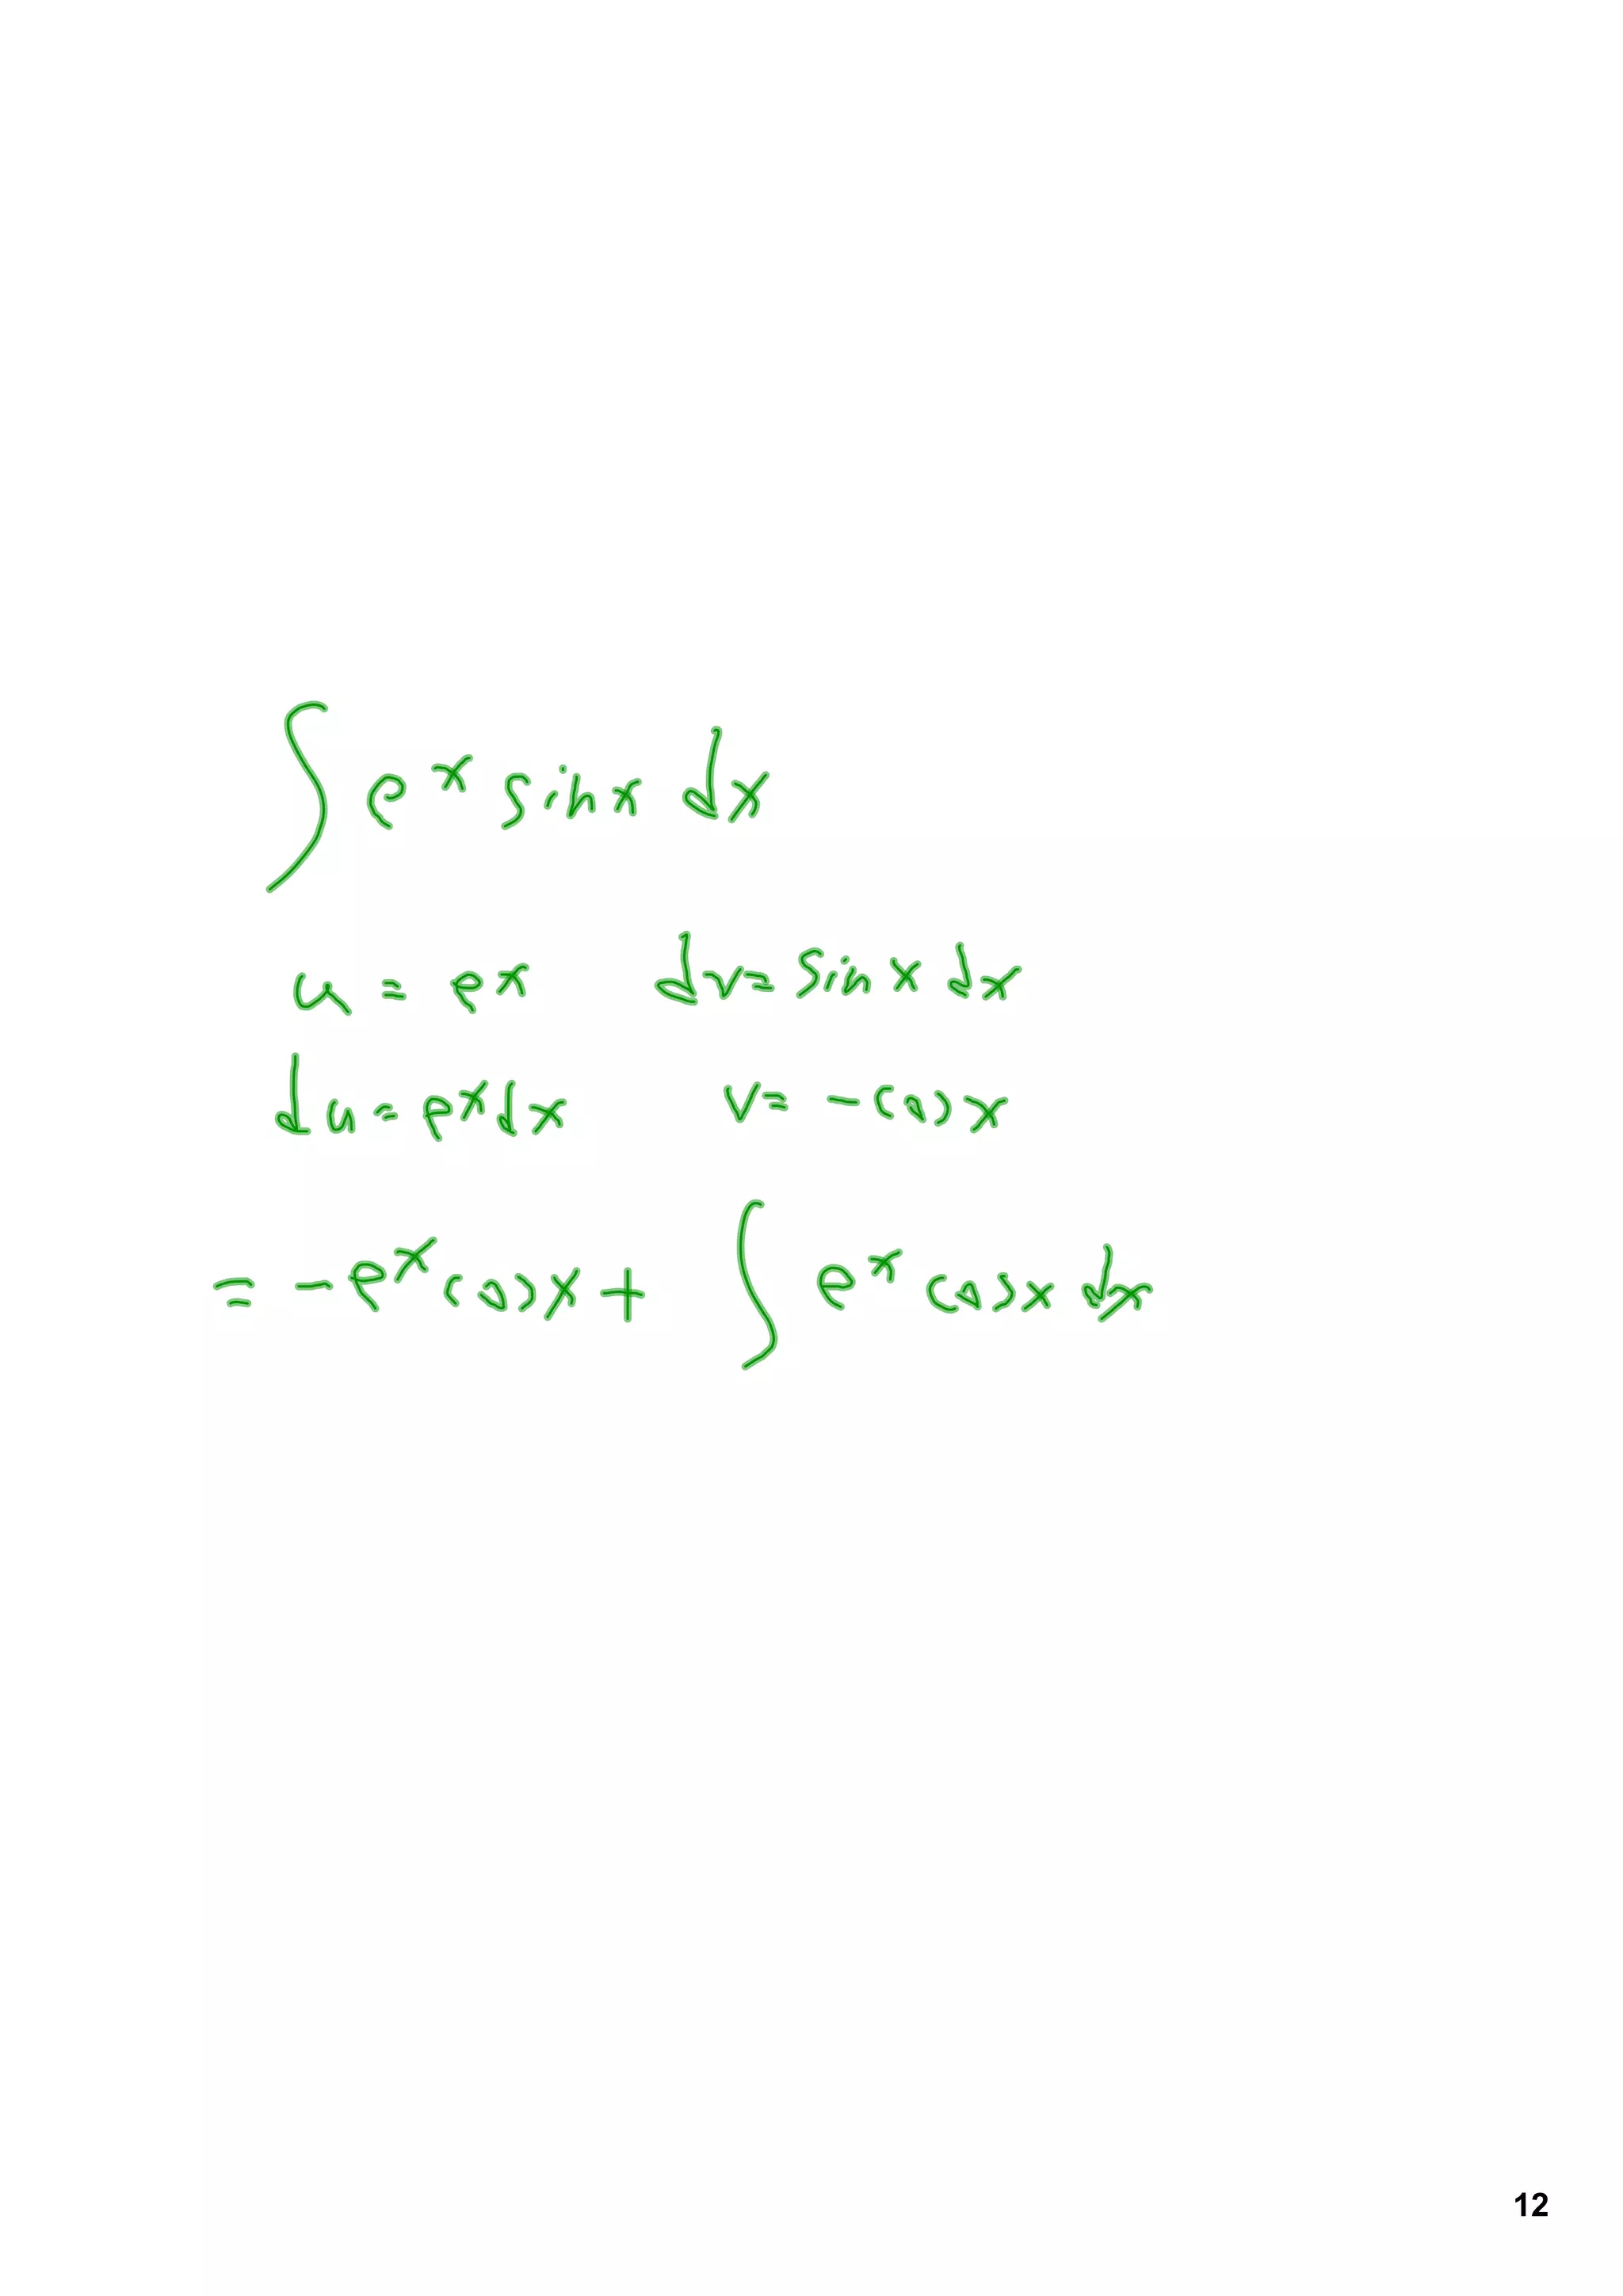 ∫ eˣ sin x dx
u = eˣ dv = sin x dx
du = eˣ dx v = -cos x
= -eˣ cos x + ∫ eˣ cos x dx
12